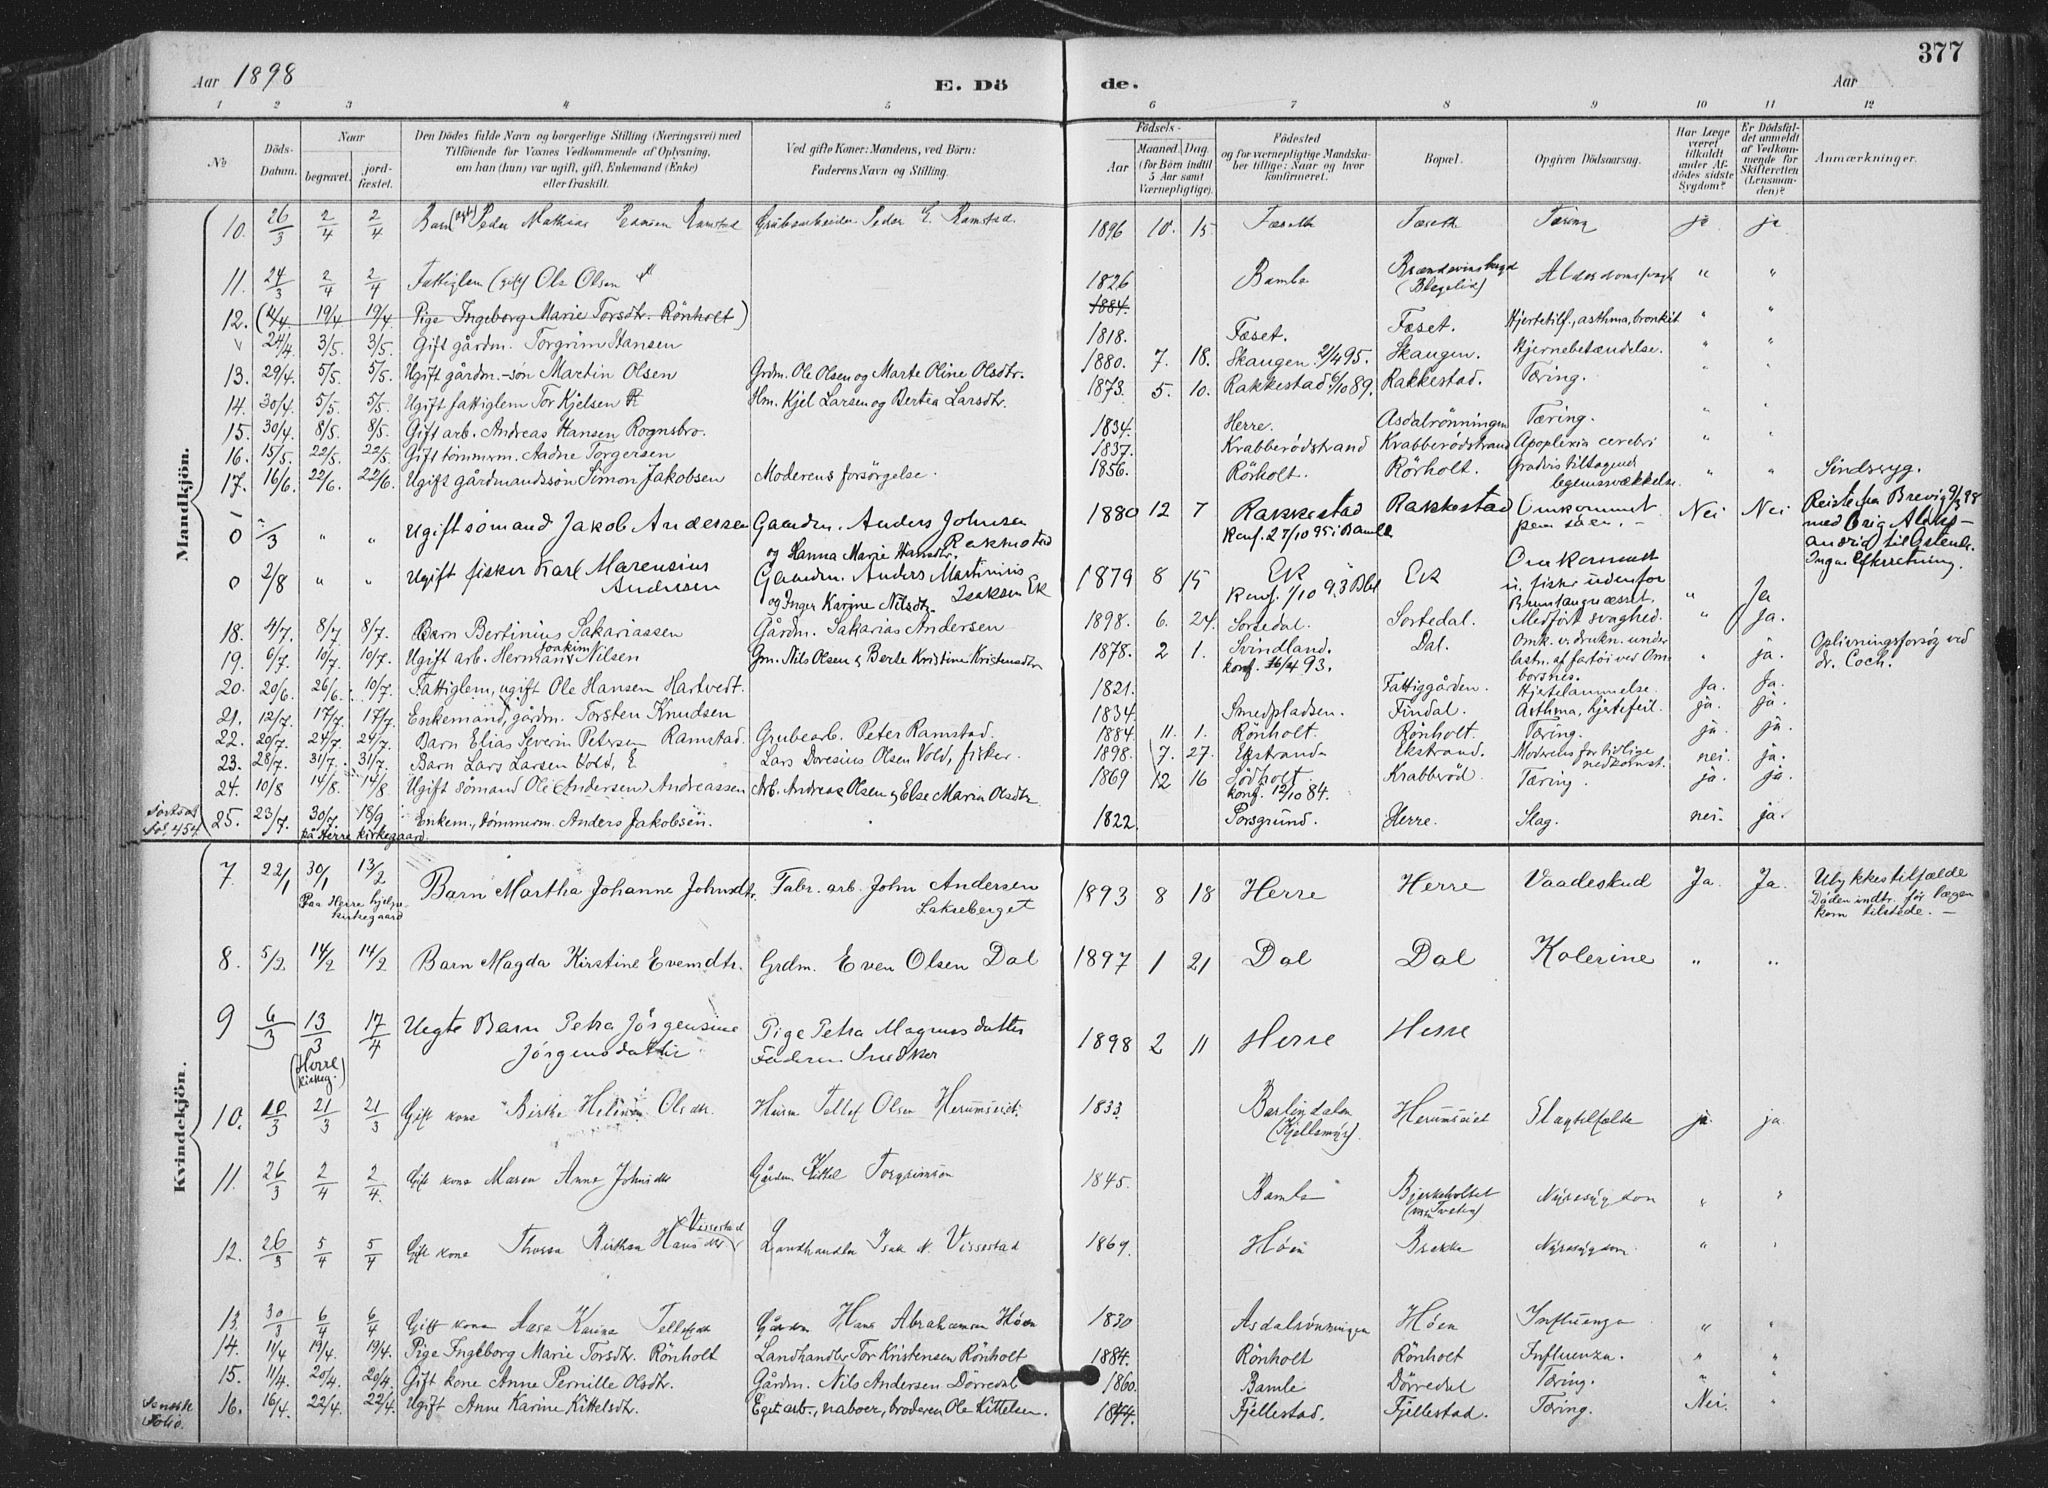 377
Aar 1898 E. Dö de. Aar
1 2 3 4 5 6 7 8 9 10 11 12
No Döds-Datum. Naar begravet. jordfæstet. Den Dödes fulde Navn og borgerlige Stilling (Næringsvei) med Tilföiende for Voxnes Vedkommende af Oplysning, om han (hun) var ugift, gift, Enkemand (Enke) eller fraskilt. Ved gifte Koner: Mandens, ved Börn: Faderens Navn og Stilling. Födsels- Aar Maaned. Dag. (for Börn indtil 5 Aar samt Værnepligtige). Födested og for værnepligtige Mandskaber tillige: Naar og hvor konfirmeret. Bopæl. Opgiven Dödsaarsag. Har Læge været tilkaldt under Afdödes sidste Sygdom? Er Dödsfaldet anmeldt af Vedkommende for Skifteretten (Lensmanden)? Anmærkninger.
Mandkjön.
10. 26/3 2/4 2/4 Barn (ægte) Peder Mathias Ramstad Grubearbeider Peder E. Ramstad. 1896 10. 15 Tæring ja ja
11. 24/3 2/4 2/4 Fattiglem (gift) Ole Olsen 1826 Bamble Alderdomssvaght " "
12. (11/4 19/4 19/4 Pige Ingeborg Marie Torsdtr. Rönholt) 1884. " "
24/4. 3/5. 3/5. Gift gårdm. Torgrim Hansen 1818. Fæset. Fæset. Hjertetilf., asthma, bronkit " "
13. 29/4. 5/5. 5/5. Ugift gårdm.-sön Martin Olsen Grdm. Ole Olsen og Marte Oline Olsdtr. 1880. 7. 18. Skaugen. 2/4 95. Skaugen. Hjernebetændelse. " "
14. 30/4. 5/5. 5/5. Ugift fattiglem Tor Kjelsen Hm. Kjel Larsen og Bertea Larsdtr. 1873. 5. 10. Rakkestad 6/10 89. Rakkestad. Tæring. " "
15. 30/4. 8/5. 8/5. Gift arb. Andreas Hansen Rognsbro. 1834. Herre. Asdalrönningen Tæring. " "
16. 15/5. 22/5. 22/5. Gift tömmerm. Aadne Torgersen 1837. Krabberødstrand Krabberødstrand Apoplexia cerebri " "
17. 16/6. 22/6. 22/6. Ugift gårdmandssön Simon Jakobsen Moderens forsörgelse. 1856. Rörholt. Rörholt. Gradvis tiltagende legemssvækkelse. " " Sindssyg.
0 /3 " " Ugift sömand Jakob Andersen Gaardm. Anders Johnsen og Hanna Marie Hansdtr. 1880 12 7 Rakkestad konf. 27/10 95 i Bamle Rakkestad Omkommet paa söen. - Nei Nei Reiste fra Brevig 9/3 98 med Brig til Ostende. Ingen Efterretning.
0 2/8 " " Ugift fisker Karl Marensius Andersen Gaardm. Anders Martinius Isaksen Ek og Inger Karine Nilsdtr. 1879 8 15 Ek konf. 1/10 93 Bbl Ek Omkommet u. fiske udenfor " Ja
18. 4/7. 8/7. 8/7. Barn Bertinius Sakariassen Gårdm. Sakarias Andersen 1898. 6. 24. Sortedal. Sortedal. Medfört svaghed. " ja.
19. 6/7. 10/7. 10/7. Ugift arb. Herman Joakim Nilsen Gm. Nils Olsen & Berte Kristine Kristensdtr 1878. 2 1. Svindland. konf. 16/4 93. Dal. Omk. v. drukn. under lastn. af fartøi ved Omborsnes. " ja. Oplivningsforsög ved dr. Coch.
20. 20/6. 26/6. 10/7. Fattiglem, ugift Ole Hansen Hartvedt. 1821. Fattiggården. Hjertelammelse. Ja. Ja.
21. 12/7. 17/7. 17/7. Enkemand, gårdm. Torsten Knudsen 1834. Smedpladsen. Findal. Asthma, hjertefeil. ja. ja.
22. 20/7. 24/7. 24/7. Barn Elias Severin Petersen Ramstad. Grubearb. Peter Ramstad. 1884. 11. 1. Rönholt. Rönholt. Tæring. ja. ja.
23. 28/7. 31/7. 31/7. Barn Lars Larsen Vold, E Lars Doresius Olsen Vold, fisker. 1898. 7. 27. Ekstrand. Ekstrand. Moderens for tidlige nedkomst. nei. ja.
24. 10/8 14/8. 14/8. Ugift sömand Ole Andersen) Andreassen Arb. Andreas Olsen & Else Maria Olsdtr. 1869 12 16 Södholt. konf. 12/10 84. Krabberöd. Tæring. ja. ja.
Fortsat Fol. 454. 25. 23/7. 30/7. 18/9 på Herre kirkegaard Enkem., tömmerm. Anders Jakobsen. 1822. Porsgrund. Herre. Slag. nei. ja.
Kvindekjön.
7. 22/1 30/1 13/2 Paa Herre hjelpekirkegaard Barn Martha Johanne Johnsdtr. Fabr. arb. John Andersen Lakseberget 1893 8 18 Herre Herre Vaadeskud Ja. Ja. Ulykkestilfælde Döden indtr. før lægen kom tilstede. -
8. 5/2 14/2 14/2 Barn Magda Kirstine Evensdtr. Grdm. Even Olsen Dal 1897 1 21 Dal Dal Kolerine " "
9 6/3 13/3 (Herre kirkeg.) 17/4 Uegte Barn Petra Jörgensine Jörgensdatter Pige Petra Magnusdatter Faderen Snedker 1898 2 11 Herre Herre
10. 10/3 21/3 21/3 Gift kone Birthe Helene Olsdtr. Huusm Tellef Olsen Herumseiet. 1833. (Kjellsmyr). Herumseiet Slagtilfælde ja. ja.
11. 26/3 2/4 2/4. Gift kone Maren Anne Johnsdtr Gårdm. Kittel Torgrimsen 1845. Bamle Bjerkeholtet Nyresygdom " "
12. 26/3 5/4 5/4 Gift kone Thorea Birthea Hansdtr Vissestad Landhandler Isak N. Vissestad 1869. Höen Brekke Nyresygdom " "
13. 30/3 6/4 6/4 Gift kone Aase Karine Tellefsdtr Gårdm Hans Abrahamsen Höen 1830 Asdalrönningen Höen Influenza " "
14. 11/4 19/4. 19/4. Pige Ingeborg Marie Torsdtr. Rönholt Landhandler Tor Kristensen Rönholt 1884. Rönholt Rönholt Influenza. " "
15. 11/4. 20/4. 20/4. Gift kone Anne Pernille Olsdtr. Gårdm. Nils Andersen Dörredal 1860. Bamle Dörredal Tæring. " "
16. 16/4. 22/4. 22/4. Ugift Anne Karine Kittelsdtr. Eget arb., naboer, broderen Ole Kittelsen. 1844. Fjellestad. Fjellestad. Tæring. Nei "